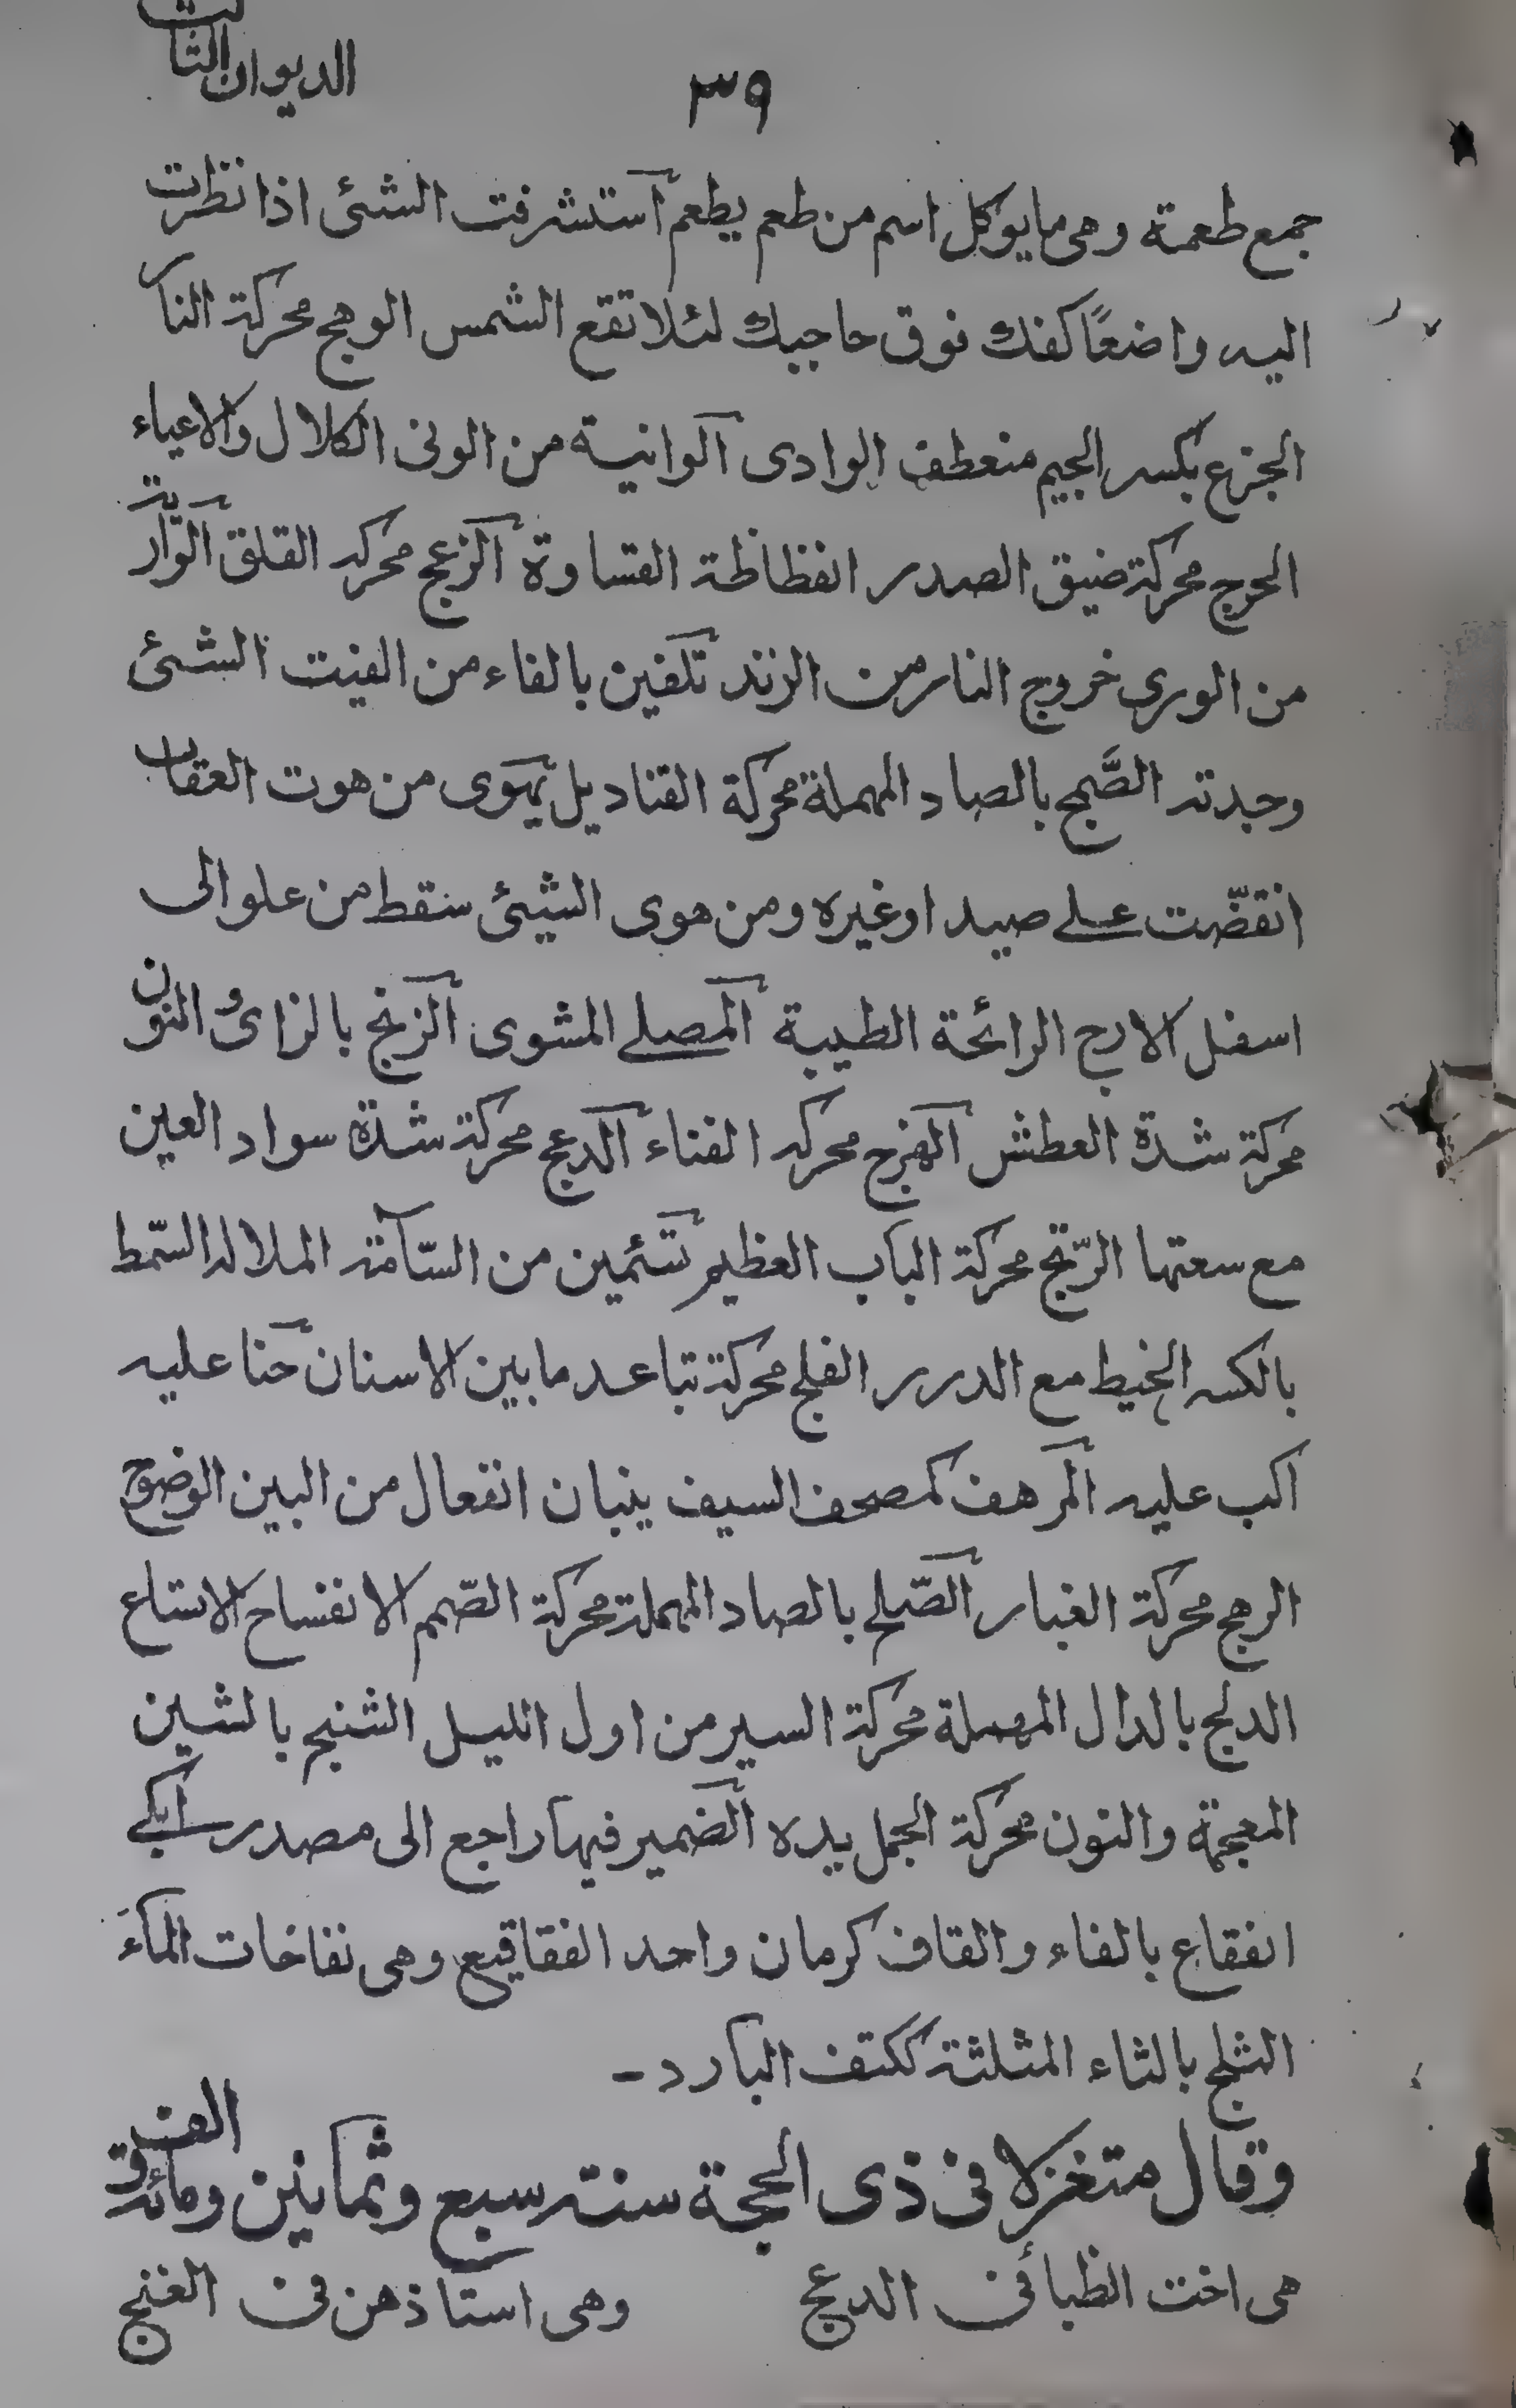 ٣٩
الديوان الثالث
جمع طعمة وهى مايوكل اسم من طعم يطعم آستشرفت الشئ اذا نظرت
اليه واضعًا كفك فوق حاجبك لئلا تقع الشمس الوهج محركة النار
الجزع بكسر الجيم منعطف الوادى آلوانية من الونى الكلال والاعياء
الحرج محركة ضيق الصدر الفظاظة القساوة آلزعج محركه القلق آلوّارية
من الورى خروج النار من الزند تلفين بالفاء من الفيت الشئ
وجدته الصَّمج بالصاد المهملة محركة القناديل يهوى من هوت العقاب
انقضّت على صيد اوغيره ومن هوى الشيئ سقط من علو الى
اسفل الارج الرائحة الطيبة آلمصلى المشوى آلزنج بالزائ والنون
محركة شدة العطش آلهزج محركه الغناء آلدعج محركة شدة سواد العين
مع سعتها الرّتج محركة الباب العظيم تسَئمين من السّآمة الملاله السّمط
بالكسر الخيط مع الدرر الفلج محركة تباعد مابين الاسنان حنا عليه
اكب عليه آلمرهف كمصحف السيف ينبان انفعال من البين الوضوح
الرهج محركة الغبار آلصّلج بالصاد المهملة محركة الصّمم الانفساح الاتساع
الدلج بالدال المهملة محركة السير من اول الليل الشنج بالشين
المعجمة والنون محركة الجمل يده آلضمير فيها راجع الى مصدر ابكى
الفقاع بالفاء والقاف كرمان واحد الفقاقيع وهى نفاخات المآء
الثلج بالثاء المثلثة ككتف البارد -
وقال متغزلا فى ذى الحجة سنة سبع وثمانين ومائة والف
هى اخت الظبا فى الدعج وهى استاذهن فى الغنج